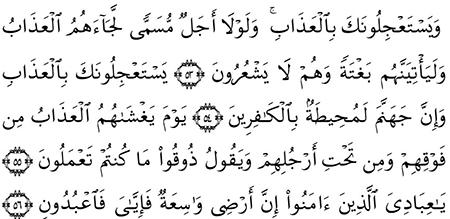 وَيَسۡتَعۡجِلُونَكَ بِٱلۡعَذَابِ ۚ وَلَوۡلَآ أَجَلٌ مُّسَمًّى لَّجَآءَهُمُ ٱلۡعَذَابُ
وَلَيَأۡتِيَنَّهُم بَغۡتَةً وَهُمۡ لَا يَشۡعُرُونَ ۝٥٣ يَسۡتَعۡجِلُونَكَ بِٱلۡعَذَابِ
وَإِنَّ جَهَنَّمَ لَمُحِيطَةٌۢ بِٱلۡكَٰفِرِينَ ۝٥٤ يَوۡمَ يَغۡشَىٰهُمُ ٱلۡعَذَابُ مِن
فَوۡقِهِمۡ وَمِن تَحۡتِ أَرۡجُلِهِمۡ وَيَقُولُ ذُوقُوا۟ مَا كُنتُمۡ تَعۡمَلُونَ ۝٥٥
يَٰعِبَادِيَ ٱلَّذِينَ ءَامَنُوٓا۟ إِنَّ أَرۡضِي وَٰسِعَةٌ فَإِيَّٰيَ فَٱعۡبُدُونِ ۝٥٦